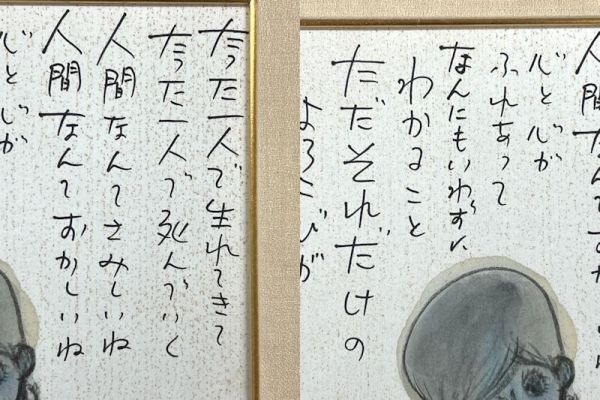 たった一人で生れてきて
たった一人で死んでいく
人間なんてさみしいね
人間なんておかしいね
心と心が
ふれあって
なんにもいわずに
わかること
ただそれだけの
よろこびが